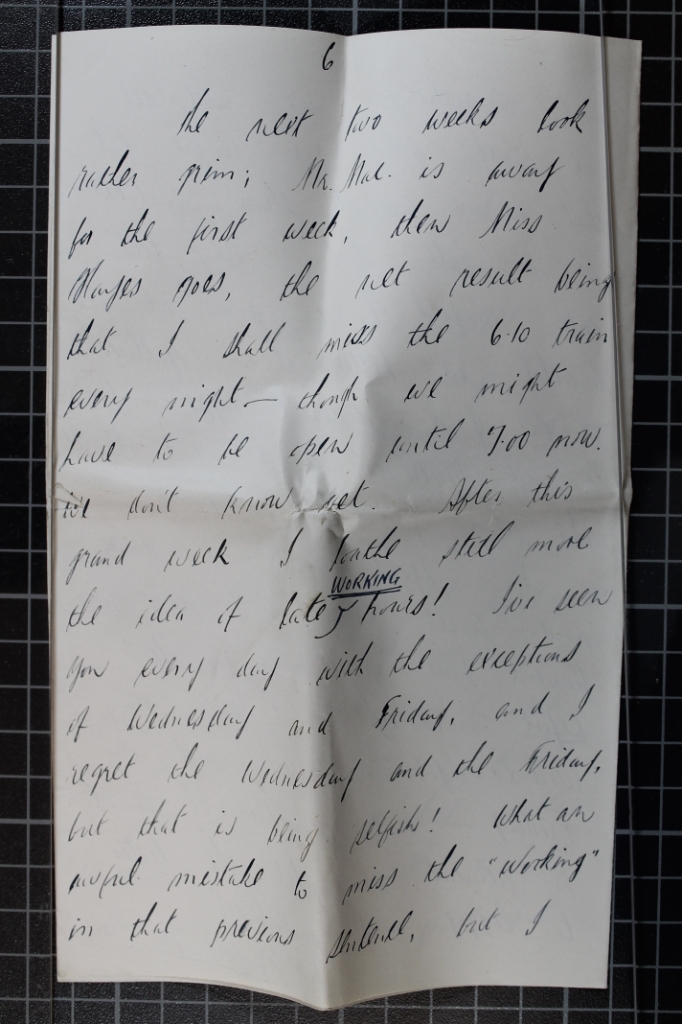 6
The next two weeks look
rather grim; Mr. Mac. is away
for the first week, then Miss
Hayes goes, the net result being
that I shall miss the 6.10 train
every night — though we might
have to be open until 7.00 now.
We don't know yet. After this
grand week I loathe still more
WORKING
the idea of late hours! I've seen
you every day with the exceptions
of Wednesday and Friday, and I
regret the Wednesday and the Friday,
but that is being selfish! What an
awful mistake to miss the "working"
in that previous sentence, but I